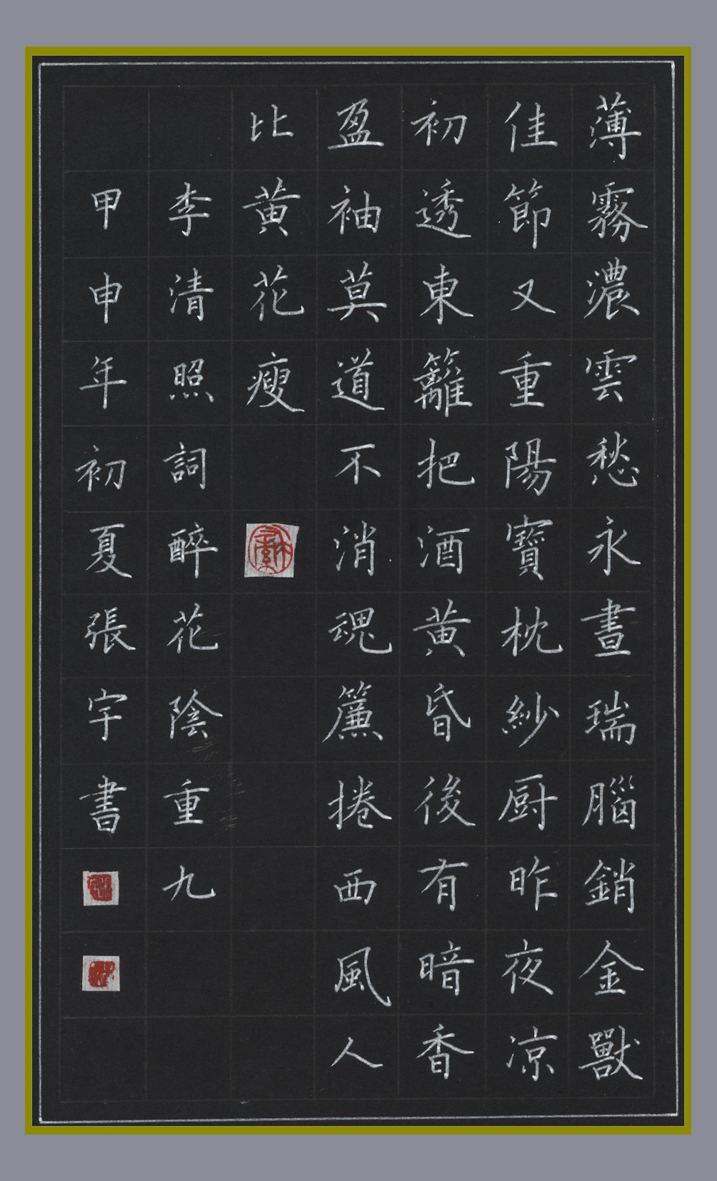 薄霧濃雲愁永晝瑞腦銷金獸
佳節又重陽寶枕紗厨昨夜凉
初透東籬把酒黄昏後有暗香
盈袖莫道不消魂簾捲西風人
比黄花瘦
李清照詞醉花陰重九
甲申年初夏張宇書